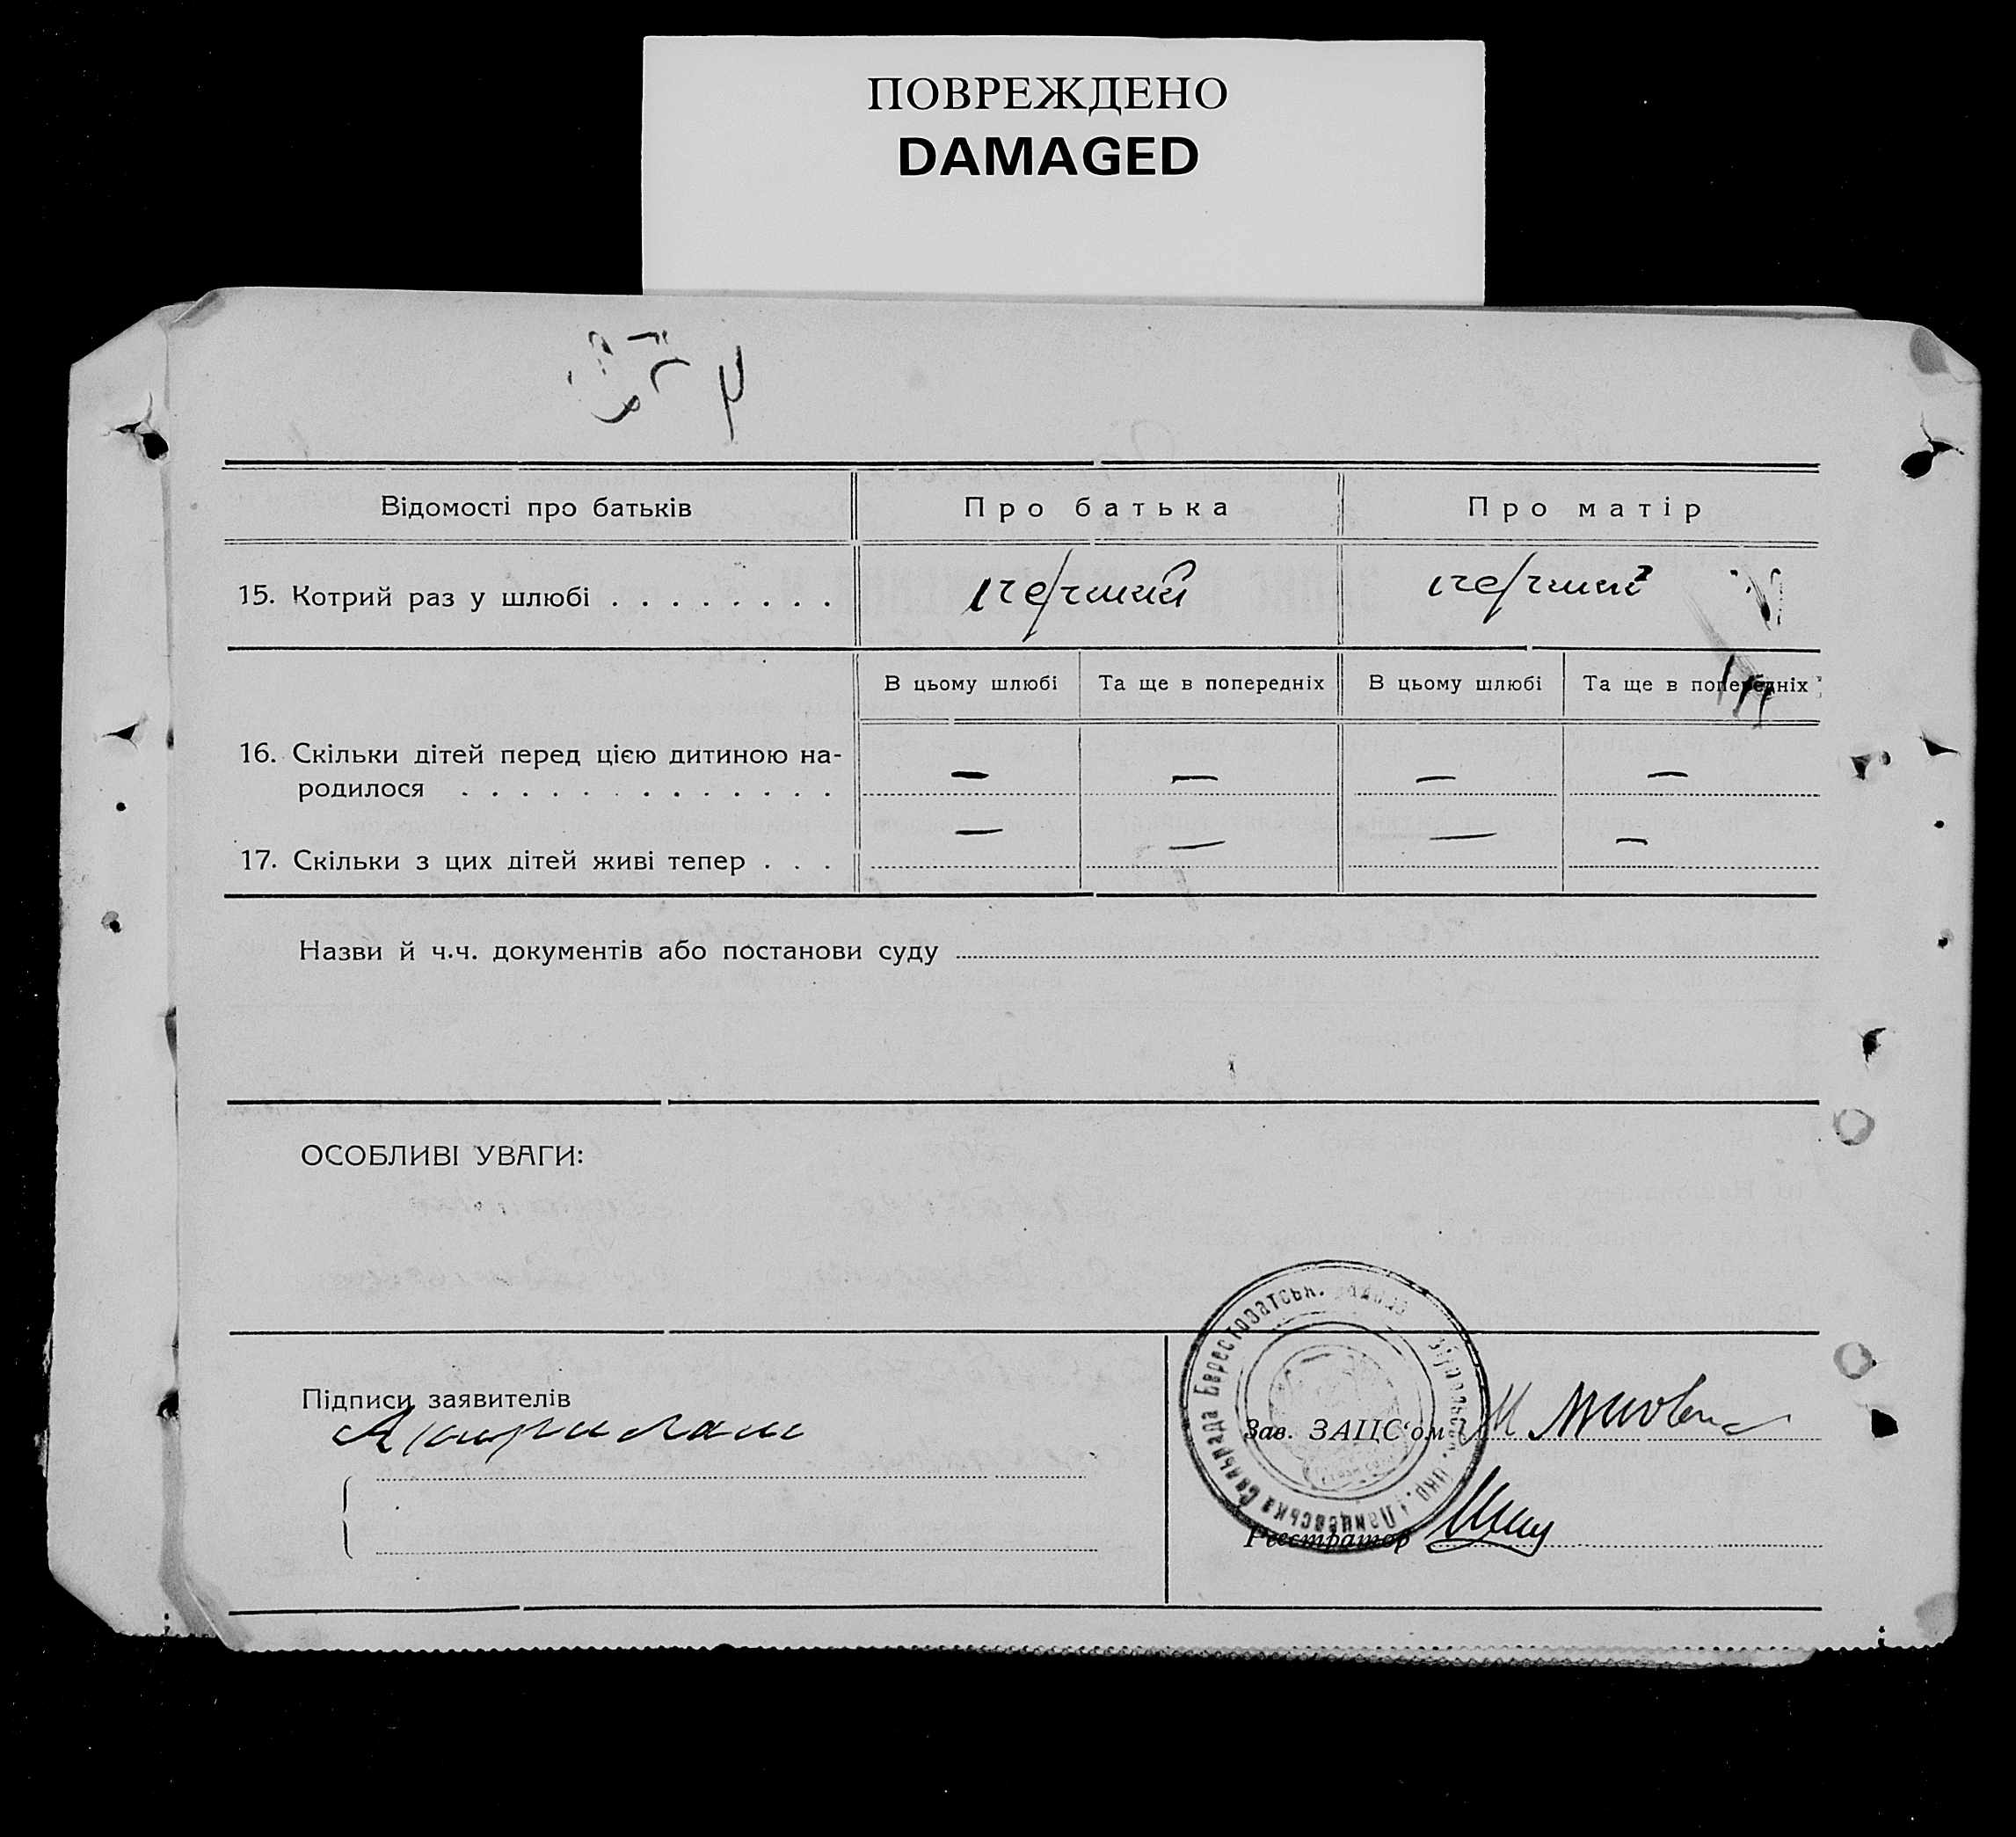 ПОВРЕЖДЕНО
DAMAGED
Відомості про батьків
Про батька
Про матір
15. Котрий раз у шлюбі . . . . . . . .
перший
перший
В цьому шлюбі
Та ще в попередніх
В цьому шлюбі
Та ще в попередніх
16. Скільки дітей перед цією дитиною на-
родилося . . . . . . . . . . . . .
— — — —
17. Скільки з цих дітей живі тепер . . .
— — — —
Назви й ч.ч. документів або постанови суду
ОСОБЛИВІ УВАГИ:
Підписи заявителів
Зав. ЗАЦС‘ом
Реєстратор
Сільрада Берестоватськ.